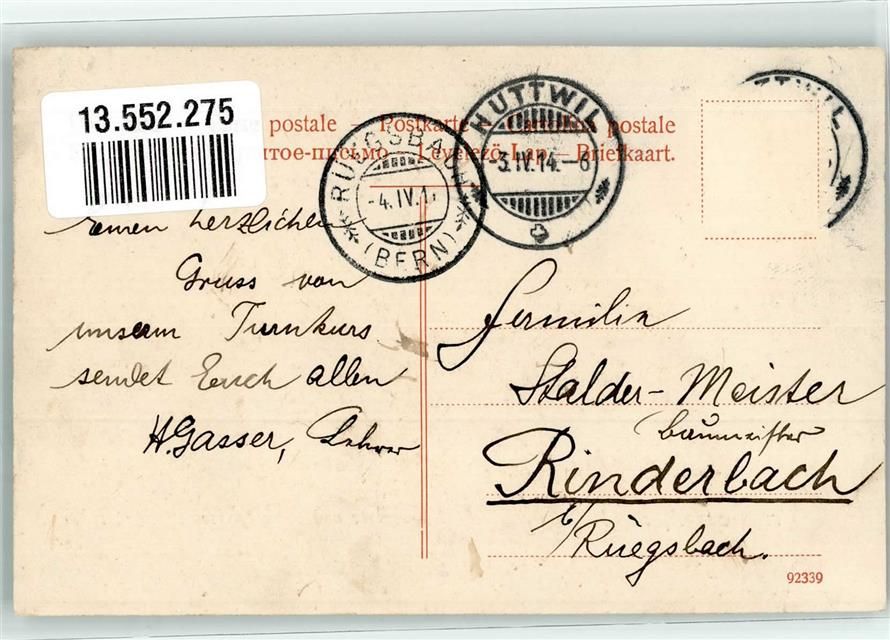 13.552.275
postale — Postkarte — Cartolina postale
Levelező-Lap — Briefkaart.
RÜEGSBACH
-4.IV.1
(BERN)
HUTTWIL
3.IV.14.-6
TTWIL
einen herzlichen
Gruss von
unserm Turnkurs
sendet Euch allen
H. Gasser, Lehrer
Familie
Stalder-Meister
Baumeister
Rinderbach
b/Rüegsbach.
92339